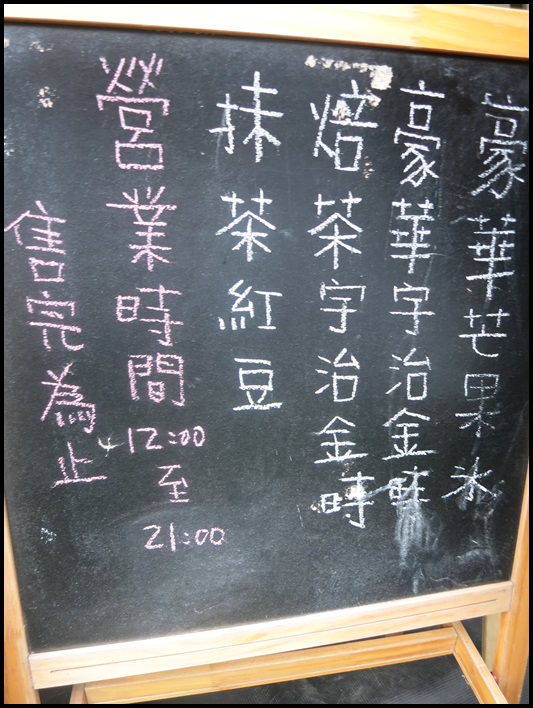 豪華芒果氷
豪華宇治金時
焙茶宇治金時
抹茶紅豆
營業時間 12:00 至 21:00
售完為止